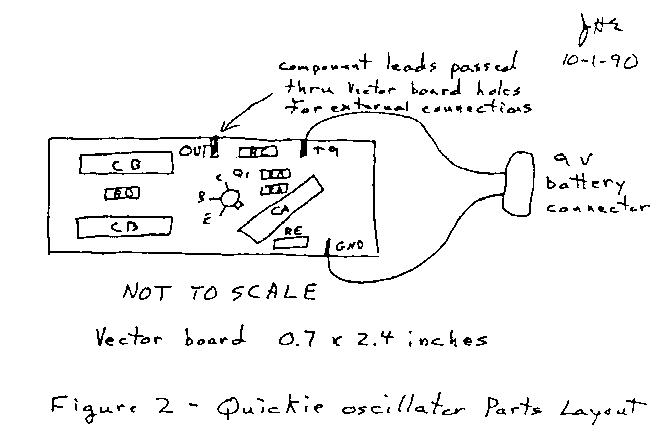 JHE
10-1-90
component leads passed
thru Vector board holes
for external connections
OUT
RC
+9
CB
C
Q1
RA
RA
9 V
battery
connector
B
CA
E
CB
RE
GND
NOT TO SCALE
Vector board 0.7 x 2.4 inches
Figure 2 - Quickie oscillator Parts Layout